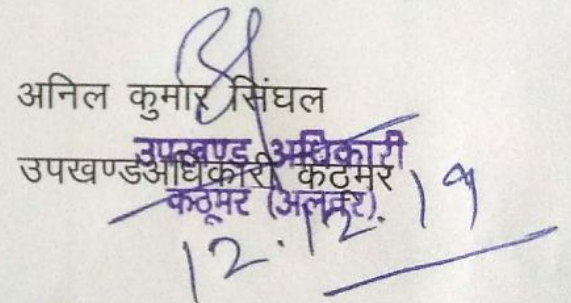 अनिल कुमार सिंघल
उपखण्ड अधिकारी
उपखण्डअधिकारी कठूमर
कठूमर (अलवर)
12.12.19